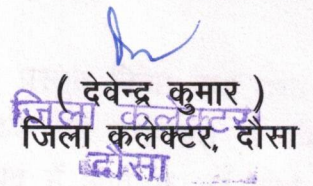 ( देवेन्द्र कुमार )
जिला कलेक्टर
जिला कलेक्टर, दौसा
दौसा